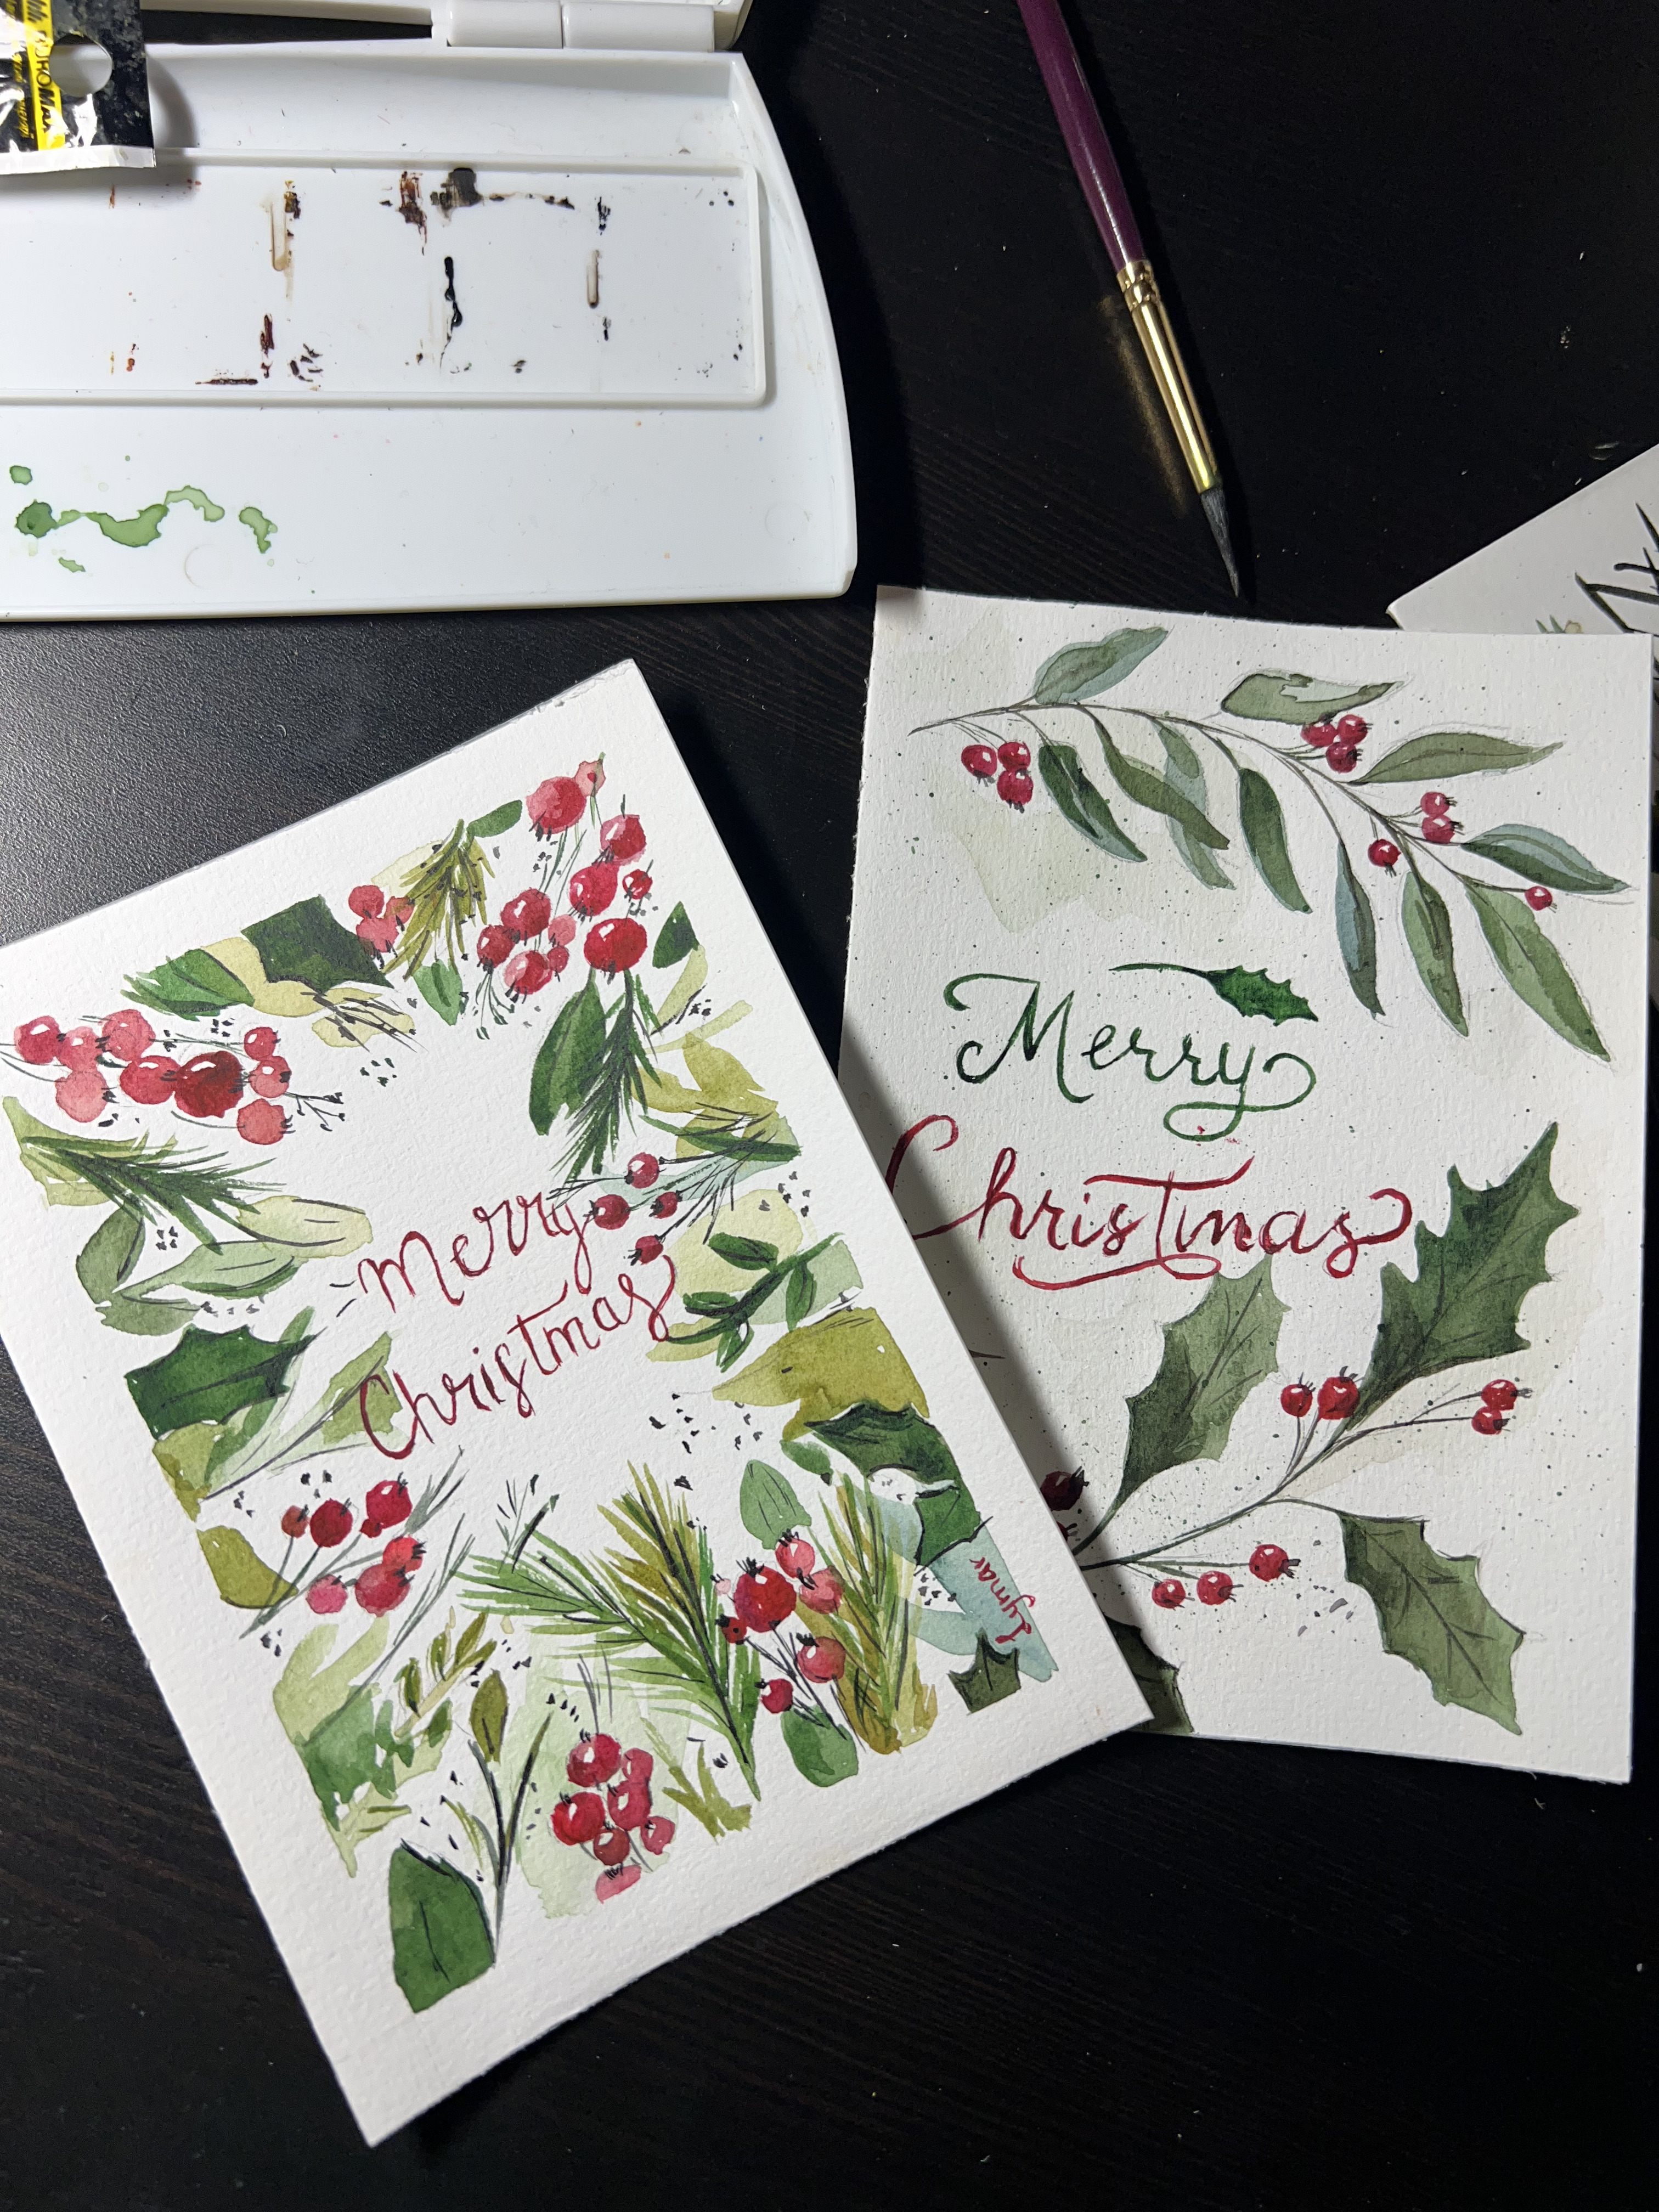 Merry
Christmas
Lymar
Merry
Christmas